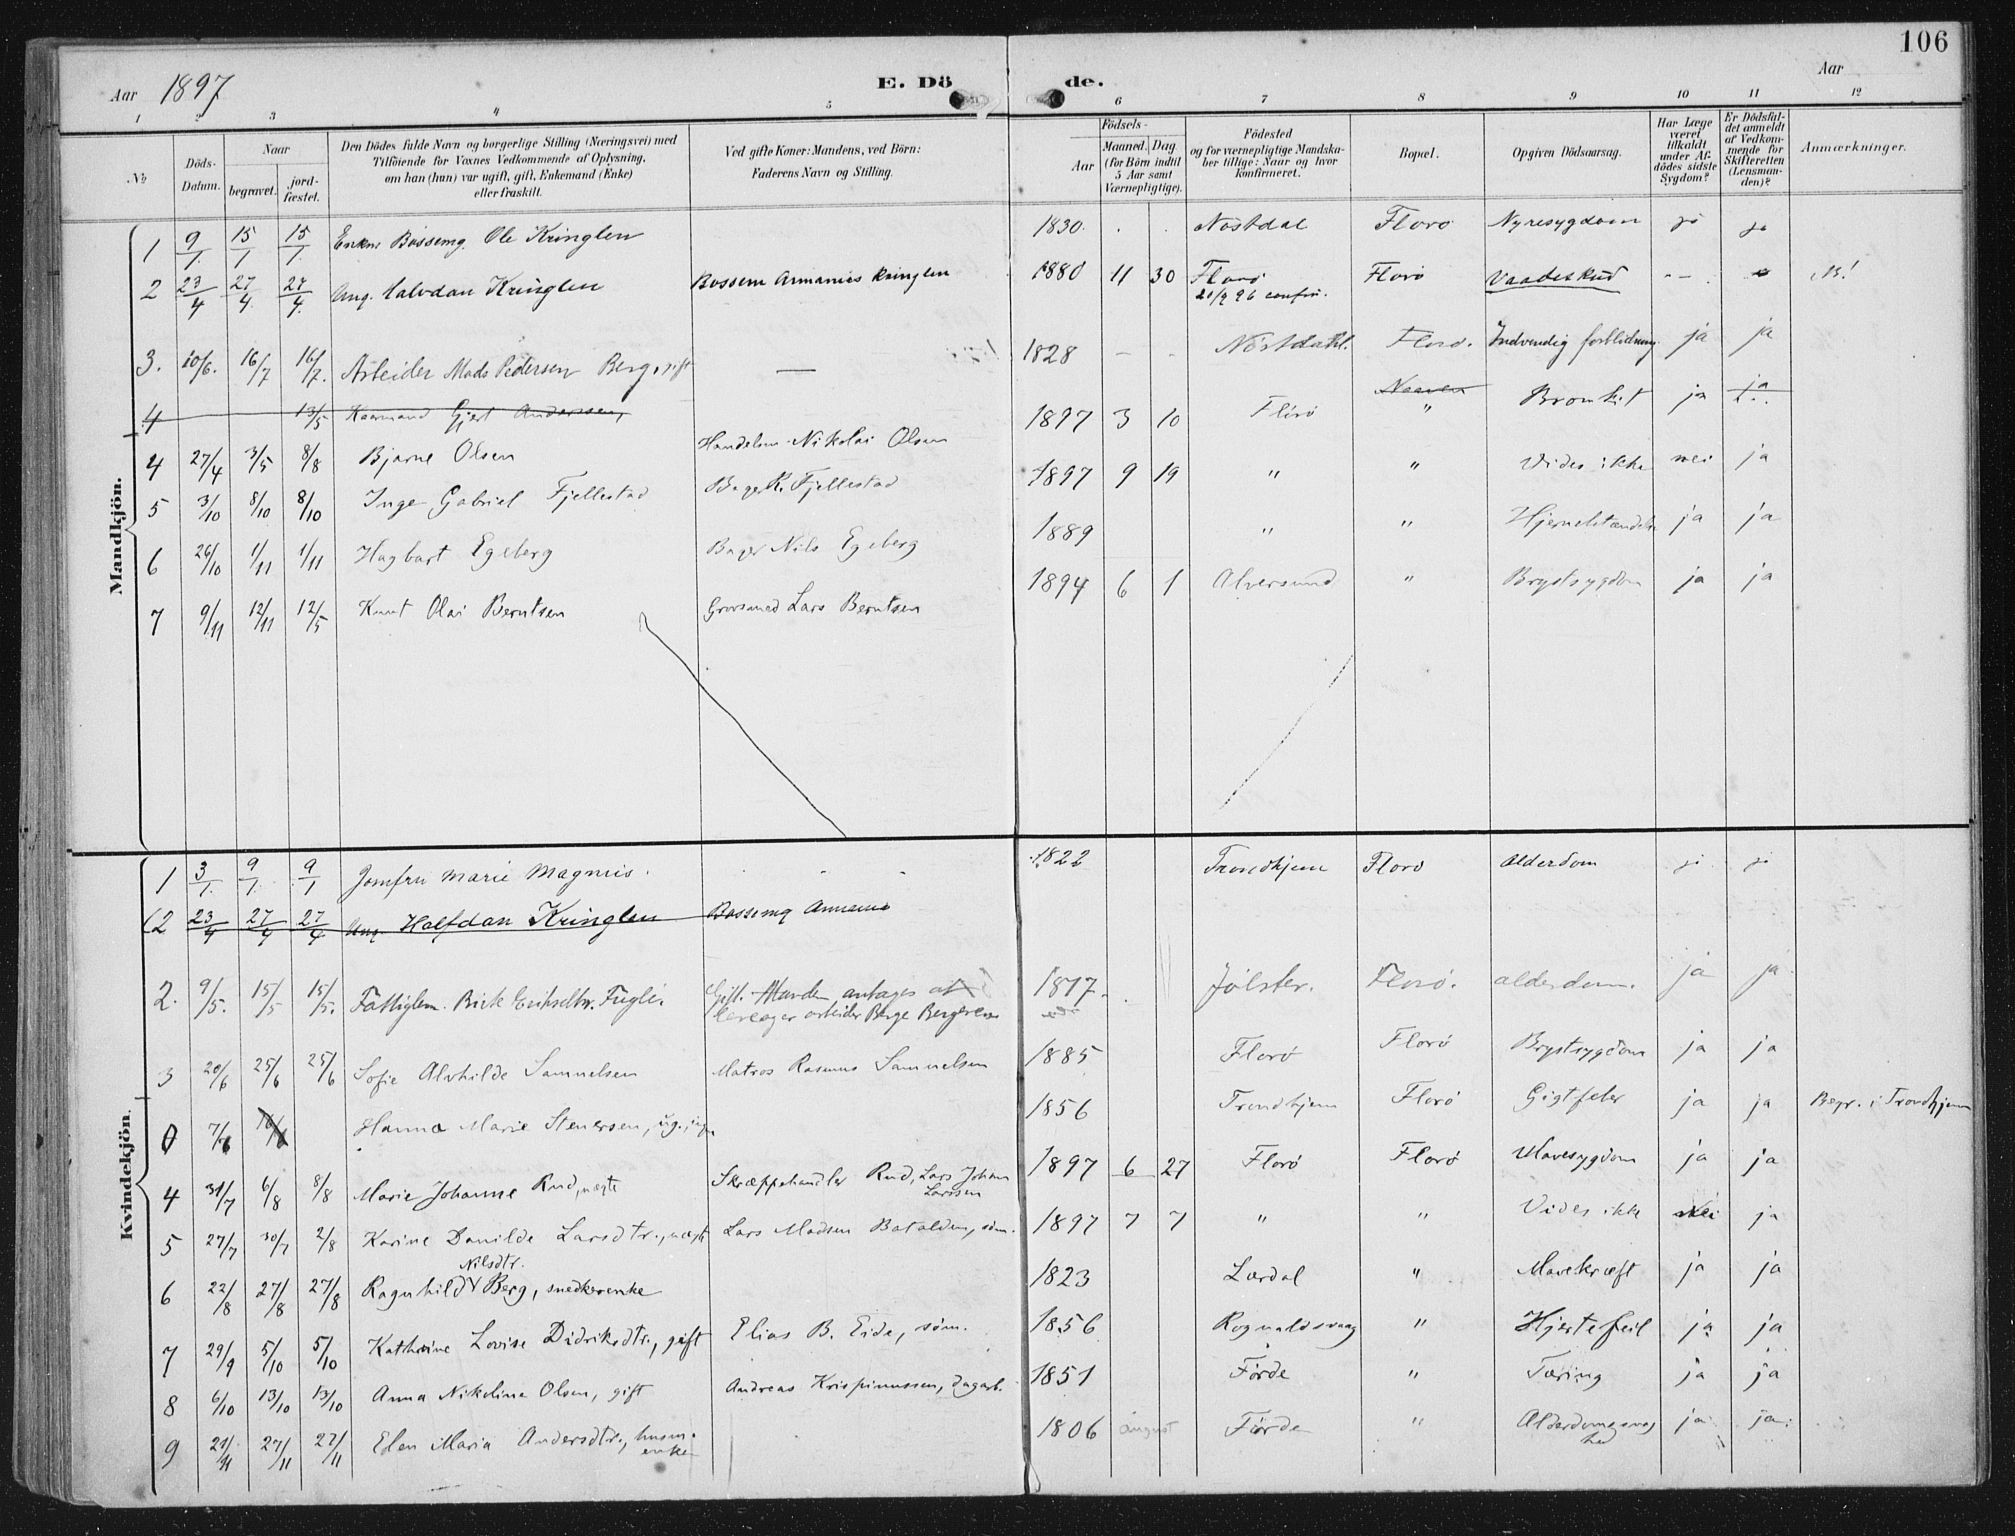 106
Aar 1897 E. Dö de. Aar
1 2 3 4 5 6 7 8 9 10 11 12
No
Döds-Datum.
Naar
begravet.
jord-fæstet.
Den Dödes fulde Navn og borgerlige Stilling (Næringsvei) med
Tilföiende for Voxnes Vedkommende af Oplysning,
om han (hun) var ugift, gift, Enkemand (Enke)
eller fraskilt.
Ved gifte Koner: Mandens, ved Börn:
Faderens Navn og Stilling.
Födsels-
Aar
Maaned. Dag
(for Börn indtil
5 Aar samt
Værnepligtige).
Födested
og for værnepligtige Mandska-
ber tillige: Naar og hvor
Konfirmeret.
Bopæl.
Opgiven Dödsaarsag.
Har Læge
været
tilkaldt
under Af-
dödes sidste
Sygdom?
Er Dödsfal-
det anmeldt
af Vedkom-
mende for
Skifteretten
(Lensman-
den)?
Anmærkninger.
Mandkjön.
1 9/1. 15/1 15/1. Enkm. Bossemg. Ole Kringlen 1830. Nöstdal Florö Nyresygdom ja ja
2 23/4 27/4. 27/4. Ung. Halvdan Kringlen Bossem Ammanies Kringlen 1880 11 30 Florö Florö Vaadeskud - NB!
20/9 96 confir.
3. 10/6. 16/7 16/7. Arbeider Mads Pedersen Berg, gift — 1828 - - Nöstdahl. Florö. Indvendig forblödning ja ja
4 13/5 Kaarmand Gjert Anderssen,
4 27/4 3/5 8/8 Bjarne Olsen Handelsm. Nikolai Olsen 1897 3 10 Florö " Bronkit ja ja
5 3/10 8/10 8/10 Inge Gabriel Fjellestad Bager K. Fjellestad 1897 9 19 " " Vides ikke nei ja
6 26/10 1/11 1/11 Hagbart Egeberg Bager Nils Egeberg 1889 " " ja ja
7 9/11 12/11 12/5 Knut Olai Berntsen Grovsmed Lars Berntsen 1894 6 1 Alversund " Brystsygdom ja ja
Kvindekjön.
1 3/1. 9/1. 9/1 Jomfru Marie Magnus. 1822 Trondhjem Florö Alderdom ja ja
(2 23/4 27/4 27/4 Ung. Halfdan Kringlen Bossemg Ammanie
2. 9/5. 15/5 15/5. Fattiglem. Brite Eriksdtr. Fugli. Gift. Manden antages at 1817. Jölster. Florö. alderdom. ja ja
arbeider Berge Bergersen
3 20/6 25/6 25/6 Sofie Alvhilde Samuelsen Matros Rasmus Samuelsen 1885 Florö Florö Brystsygdom ja ja
0 7/6 Hanna Marie Stenersen, ug. 1856 Trondhjem Florö Gigtfeber ja ja Begr. i Trondhjem
4 31/7 6/8 8/8 Marie Johanne Rud, uægte Skræppehandler Rud, Lars Johan 1897 6 27 Florö Florö Mavesygdom ja ja
Larssen
5 27/7 30/7 2/8 Karine Danilde Larsdtr., uægte Lars Madsen Batalden, söm. 1897 7 7 " " Vides ikke nei ja
Nilsdtr.
6 22/8 27/8 27/8 Ragnhild Berg, snedkerenke 1823 Lærdal " Mavekræft ja ja
7 29/9 5/10 5/10 Kathrine Lovise Didriksdtr., gift Elias B. Eide, söm. 1856 Rognaldsvaag " Hjertefeil ja ja
8 6/10 13/10 13/10 Anna Nikoline Olsen, gift Andreas Krispinussen, dagarb. 1851 Förde " Tæring ja ja
9 21/11 27/11 27/11 Elen Maria Andersdtr., husm. 1806 august Förde " Alderdomssvag ja ja
enke hed